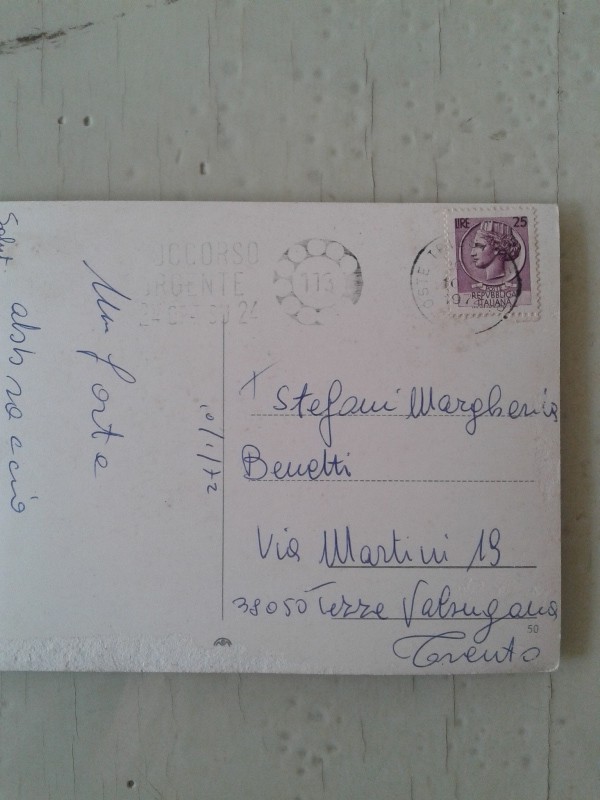 Saluti
Un forte
abbraccio
10/1/72
SOCCORSO
URGENTE
24 ORE SU 24
113
POSTE
LIRE 25
REPVBBLICA
ITALIANA
Stefani Margherita
Benetti
Via Martini 19
38050 Tezze Valsugana
Trento
50